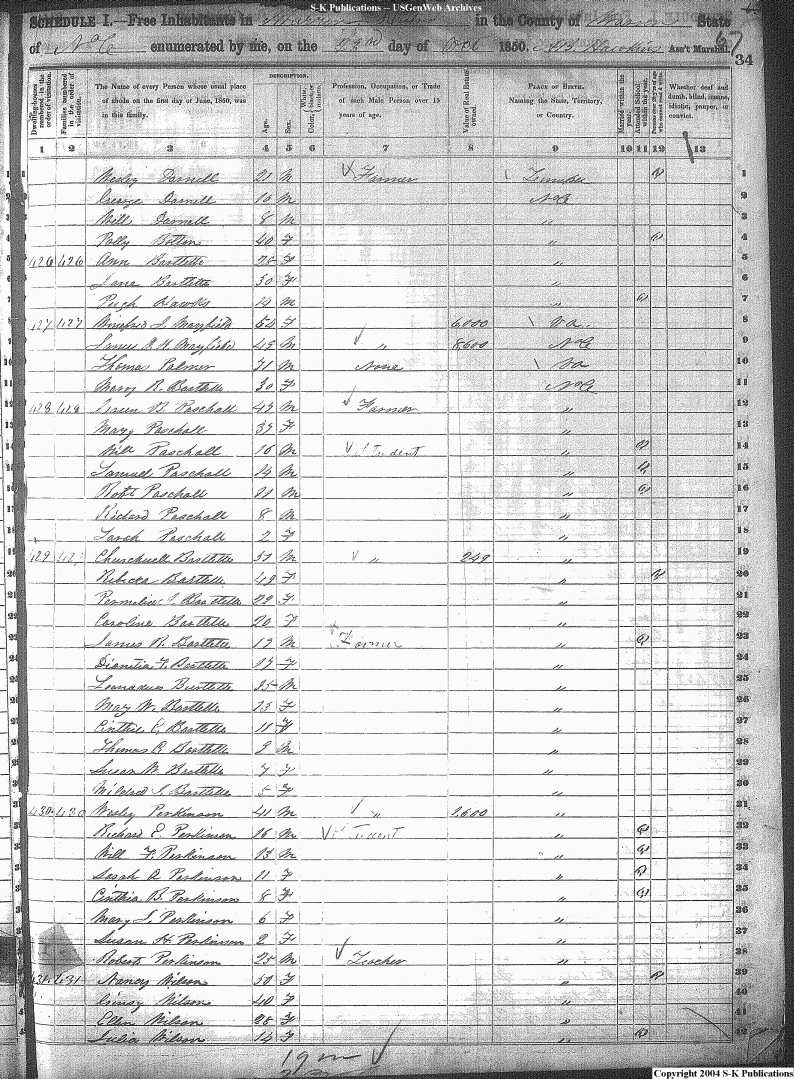 S-K Publications -- USGenWeb Archives
SCHEDULE I.—Free Inhabitants in in the County of Warren State
of N.C. enumerated by me, on the 23rd day of Oct 1850. Ass't Marshal. 67
34
DESCRIPTION.
Dwelling-houses numbered in the order of visitation. Families numbered in the order of visitation. The Name of every Person whose usual place of abode on the first day of June, 1850, was in this family. Age. Sex. Color, White, black, or mulatto. Profession, Occupation, or Trade of each Male Person over 15 years of age. Value of Real Estate owned. PLACE OF BIRTH. Naming the State, Territory, or Country. Married within the year. Attended School within the year. Persons over 20 y'rs of age who cannot read & write. Whether deaf and dumb, blind, insane, idiotic, pauper, or convict.
1 2 3 4 5 6 7 8 9 10 11 12 13
1 Wesley Darnell 21 M Farmer 1 1
2 George Darnell 10 M N C 2
3 Wills Darnell 8 M " 3
4 Polly Bolton 40 F " 1 4
5 426 426 Ann Bartlette 28 F " 5
6 Jane Bartlette 30 F " 6
7 Pugh Hawks 14 M " 1 7
8 427 427 Winefred J. Mayfield 54 F 6,000 Va. 8
9 James R H Mayfield 49 M " 8600 N C 9
10 Thomas Palmer 71 M None Va 10
11 Mary R. Bartlette 30 F N C 11
12 428 428 Green B. Paschall 47 M Farmer " 12
13 Mary Paschall 37 F " 13
14 Will Paschall 16 M Student " 1 14
15 Samuel Paschall 14 M " 1 15
16 Robt Paschall 11 M " 1 16
17 Richard Paschall 8 M " 17
18 Sarah Paschall 2 F " 18
19 429 429 Churchwell Bartlette 57 M " 249 " 19
20 Rebecka Bartlette 49 F " 1 20
21 Bartlette 22 F " 21
22 Caroline Bartlette 20 F " 22
23 James R. Bartlette 19 M Farmer " 1 23
24 F. Bartlette 17 F " 24
25 Bartlette 15 M " 25
26 Mary W. Bartlette 13 F " 26
27 E. Bartlette 11 F " 27
28 Thomas C Bartlette 9 M " 28
29 Susan W. Bartlette 7 F " 29
30 Mildred J. Bartlette 5 F " 30
31 430 430 Wesley Perkinson 41 M " 1,600 " 31
32 Richard E. Perkinson 16 M Student " 1 32
33 Will F. Perkinson 13 M " 1 33
34 Sarah A Perkinson 11 F " 1 34
35 Cinthia B. Perkinson 8 F " 1 35
36 Mary J. Perkinson 6 F " 36
37 Susan H. Perkinson 2 F " 37
38 Roberts Perkinson 25 M Teacher " 38
39 431 431 Nancy Wilson 50 F " 1 39
40 Wilson 40 F " 40
41 Ellen Wilson 28 F " 41
42 Julia Wilson 14 F " 1 42
19 m
Copyright 2004 S-K Publications